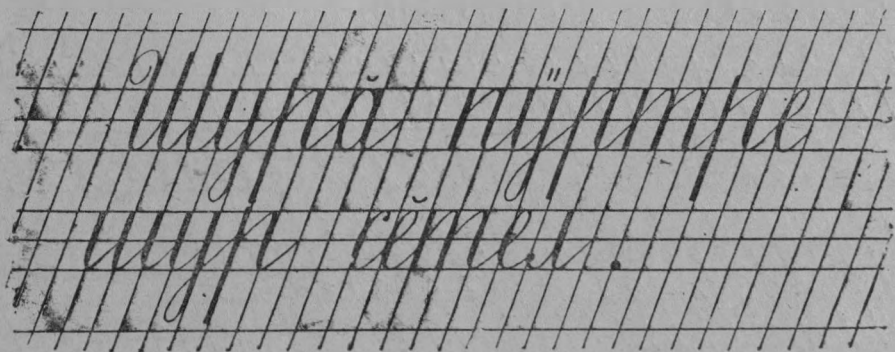 Шурă пӳртре
шур сĕтел.